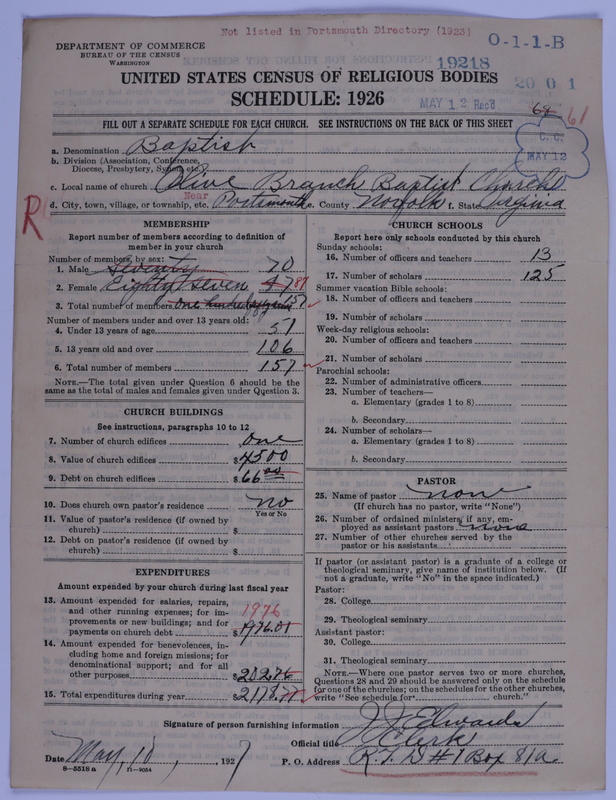 Not listed in Portsmouth Directory (1923)
DEPARTMENT OF COMMERCE
BUREAU OF THE CENSUS
WASHINGTON
O-1-1-B
19218
2001
UNITED STATES CENSUS OF RELIGIOUS BODIES
SCHEDULE: 1926
MAY 12 Rec'd
61
FILL OUT A SEPARATE SCHEDULE FOR EACH CHURCH. SEE INSTRUCTIONS ON THE BACK OF THIS SHEET
C. C.
MAY 12
a. Denomination Baptist
b. Division (Association, Conference, Diocese, Presbytery, Synod, etc.)
c. Local name of church Olive Branch Baptist Church
Near
d. City, town, village, or township, etc. Portsmouth e. County Norfolk f. State Virginia
R
MEMBERSHIP
Report number of members according to definition of member in your church
Number of members, by sex:
1. Male Seventy 70
2. Female Eighty seven 87
3. Total number of members 157
Number of members under and over 13 years old:
4. Under 13 years of age 51
5. 13 years old and over 106
6. Total number of members 157
NOTE.—The total given under Question 6 should be the same as the total of males and females given under Question 3.
CHURCH BUILDINGS
See instructions, paragraphs 10 to 12
7. Number of church edifices one
8. Value of church edifices $4500
9. Debt on church edifices $66 00
10. Does church own pastor's residence no
Yes or No
11. Value of pastor's residence (if owned by church) $
12. Debt on pastor's residence (if owned by church) $
EXPENDITURES
Amount expended by your church during last fiscal year
13. Amount expended for salaries, repairs, and other running expenses; for improvements or new buildings; and for payments on church debt $1976.01
1976
14. Amount expended for benevolences, including home and foreign missions; for denominational support; and for all other purposes $202.76
15. Total expenditures during year $2178.77
CHURCH SCHOOLS
Report here only schools conducted by this church
Sunday schools:
16. Number of officers and teachers 13
17. Number of scholars 125
Summer vacation Bible schools:
18. Number of officers and teachers
19. Number of scholars
Week-day religious schools:
20. Number of officers and teachers
21. Number of scholars
Parochial schools:
22. Number of administrative officers
23. Number of teachers—
a. Elementary (grades 1 to 8)
b. Secondary
24. Number of scholars—
a. Elementary (grades 1 to 8)
b. Secondary
PASTOR
25. Name of pastor none
(If church has no pastor, write "None")
26. Number of ordained ministers, if any, employed as assistant pastors none
27. Number of other churches served by the pastor or his assistants
If pastor (or assistant pastor) is a graduate of a college or theological seminary, give name of institution below. (If not a graduate, write "No" in the space indicated.)
Pastor:
28. College
29. Theological seminary
Assistant pastor:
30. College
31. Theological seminary
NOTE.—Where one pastor serves two or more churches, Questions 28 and 29 should be answered only on the schedule for one of the churches; on the schedules for the other churches, write "See schedule for church."
Signature of person furnishing information J. J. Edwards
Official title Clerk
Date May, 10, 1927
P. O. Address R.F.D #1 Box 81a.
8—5518 a
11—9054